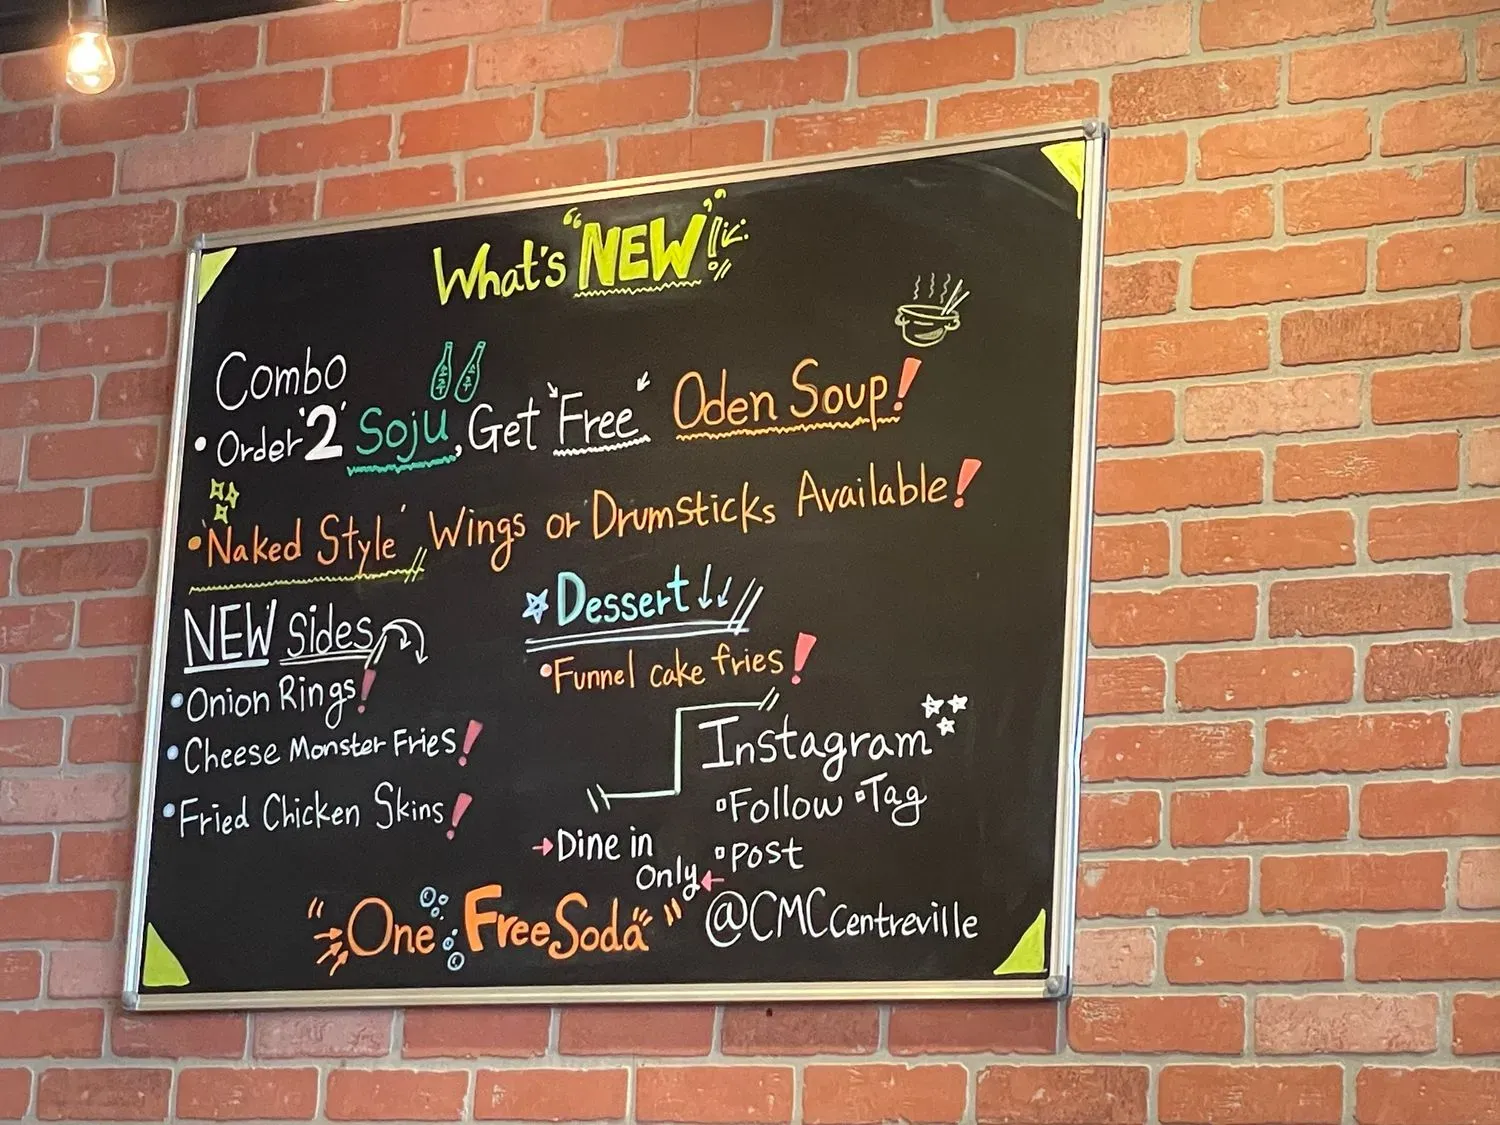 What's "NEW"!
Combo
• Order '2' Soju, Get "Free" Oden Soup!
• 'Naked Style' Wings or Drumsticks Available!
NEW Sides
• Onion Rings!
• Cheese Monster Fries!
• Fried Chicken Skins!
Dessert
• Funnel cake fries!
Instagram
Follow Tag
Post
@CMCcentreville
Dine in
only
"One Free Soda"